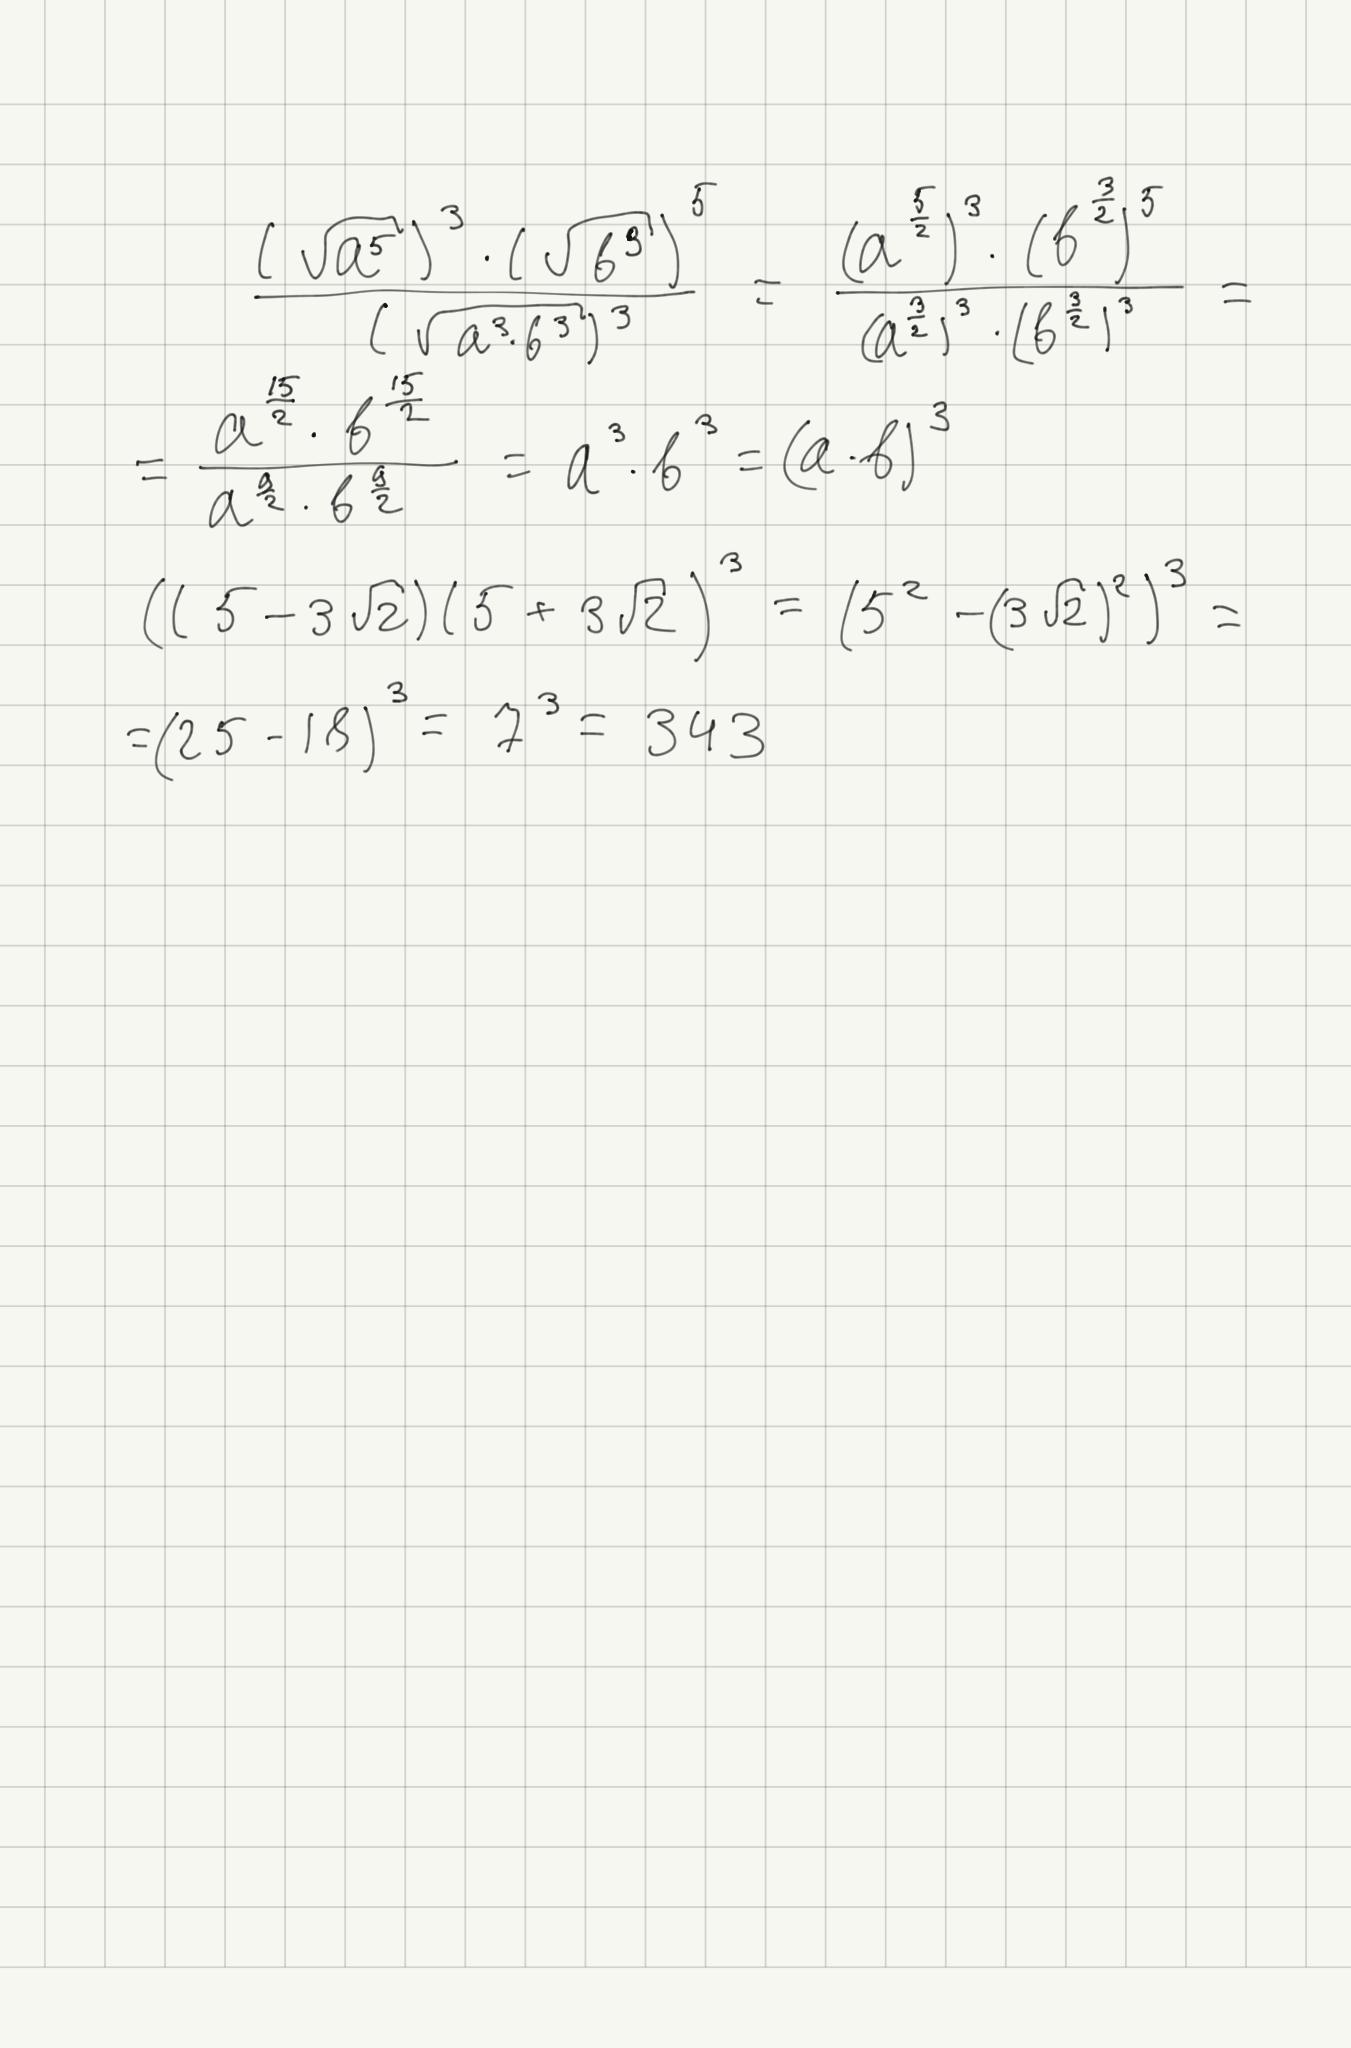 (√a⁵)³ · (√b³)⁵ / (√a³·b³)³ = (a^(5/2))³ · (b^(3/2))⁵ / (a^(3/2))³ · (b^(3/2))³ =
= a^(15/2) · b^(15/2) / a^(9/2) · b^(9/2) = a³ · b³ = (a · b)³
((5 - 3√2)(5 + 3√2)³ = (5² - (3√2)²)³ =
= (25 - 18)³ = 7³ = 343